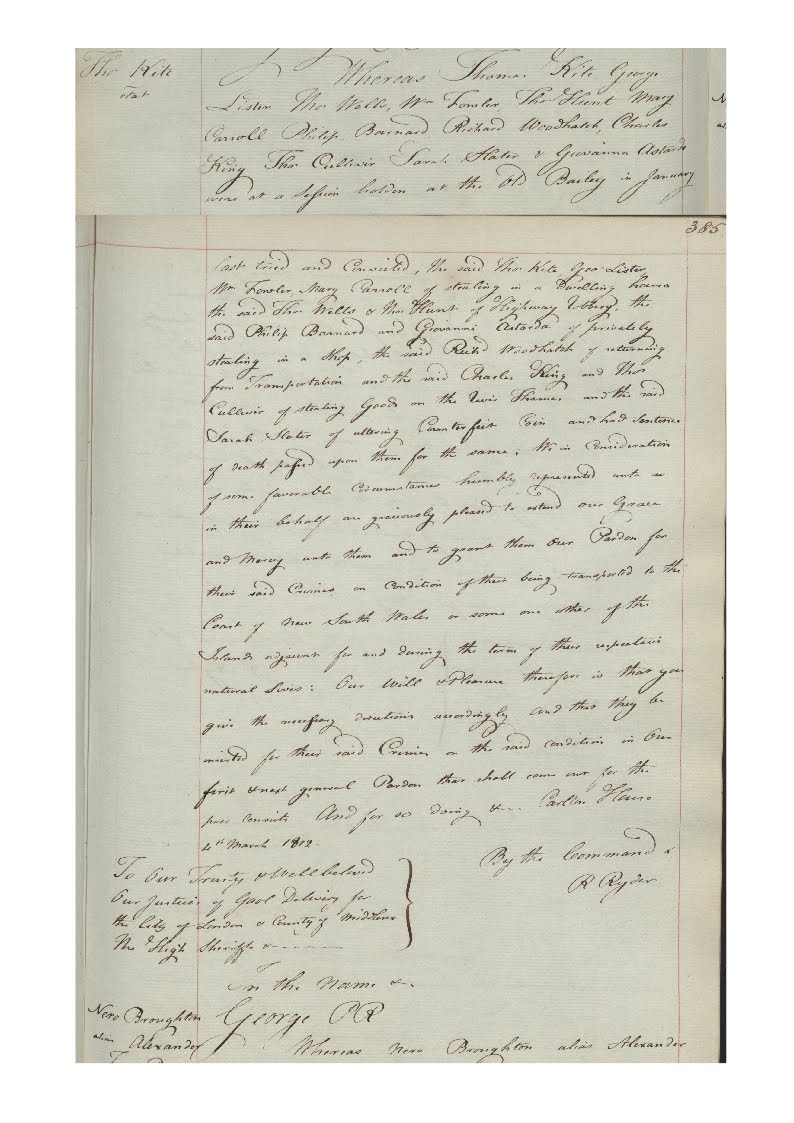 Tho Kite
etat
Whereas Thomas Kite George
Lister Tho Wells, Wm Fowler, Tho Hunt Mary
Carroll Philip Barnard Richard Woodhatch, Charles
King Thos Culliver Sarah Slater & Giovanna Astarda
were at a Session holden at the Old Bailey in January
385
last tried and Convicted, the said Thos Kite Geo Lister
Wm Fowler, Mary Carroll of stealing in a Dwelling house
the said Thos Wells & Thos Hunt of Highway Robery, the
said Philip Barnard and Giovanni Astarda of privately
stealing in a Shop, the said Richd Woodhatch of returning
from Transportation and the said Charles King and Thos
Culliver of stealing Goods on the River Thames and the said
Sarah Slater of uttering Counterfeit Coin and had Sentence
of death passed upon them for the same; We in Consideration
of some favorable Circumstances humbly represented unto us
in their behalf are graciously pleased to extend our Grace
and Mercy unto them and to grant them Our Pardon for
their said Crimes on Condition of their being transported to the
Coast of New South Wales or some one other of the
Islands adjacent for and during the term of their respective
natural Lives: Our Will & Pleasure therefore is that you
give the necessary directions accordingly and that they be
inserted for their said Crimes on the said condition in Our
first & next general Pardon that shall come out for the
poor Convicts And for so doing &c Carlton House
4th March 1812.
By the Command &
R Ryder
To Our Trusty & Wellbeloved
Our Justices of Gaol Delivery for
the City of London & County of Middlesex
The High Sheriffs &
In the Name &c.
Nero Broughton
alias Alexander
George PR
Whereas Nero Broughton alias Alexander